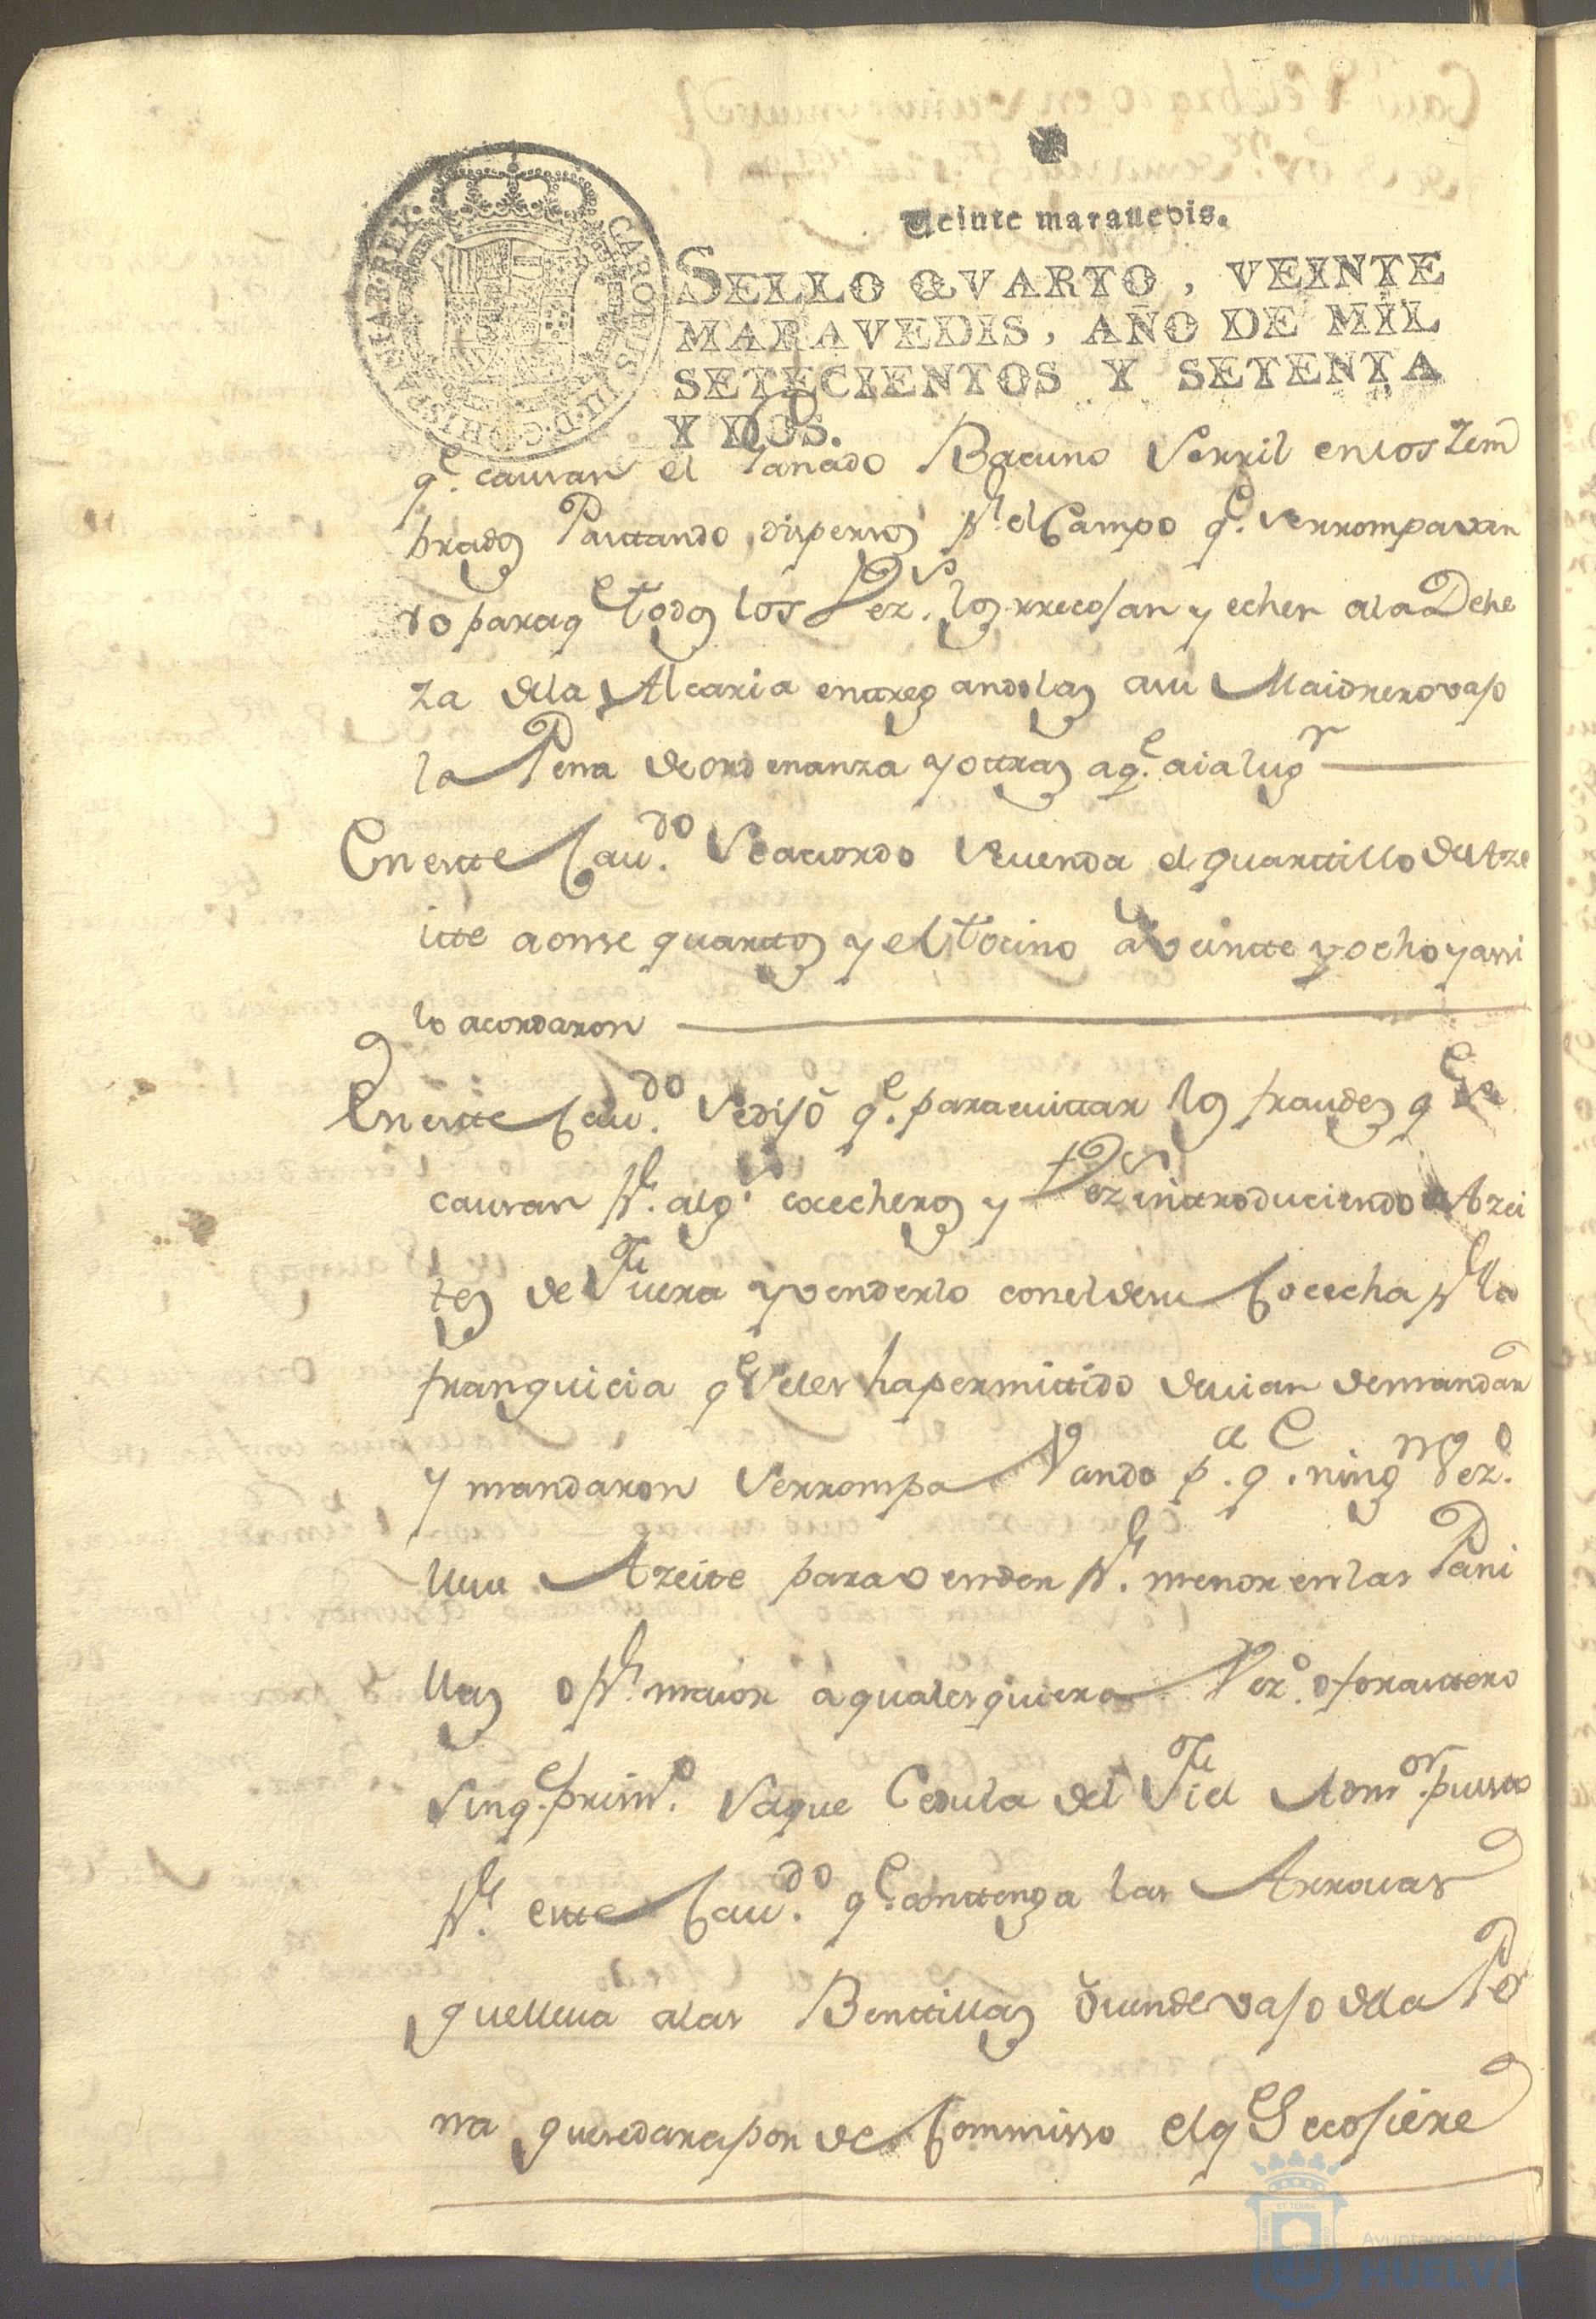 Veinte marauedis.
CAROLUS III. D. G. HISPANIAR. REX.
SELLO QVARTO, VEINTE
MARAVEDIS, AÑO DE MIL
SETECIENTOS Y SETENTA
Y DOS.
q.e causan el Ganado Bacuno Serril en los Zem
brados Pasttando, dispersos p.r el Campo q.e se rrompa van
do para q.e todos los Vez.s los rrecojan y echen a la Dehe
za de la Alcaria enttregandolas a su Maiorero vajo
la Pena de ordenanza y ottras a q.e aia lug.r
En estte Cau.do Se acuordo se uenda el quarttillo de Aze
itte a onse quarttos y el tocino a veintte y ocho y assi
lo acordaron
En estte Cau.do Se dijo q.e para euittar los fraudes q.e se
causan p.r alg.s cocecheros y Vez.s inttroduciendo Azei
tes de fuera y venderlo con el de su Cocecha p.r la
franquicia q.e Se les ha permittido deuian de mandar
y mandaron Se rrompa Vando p.a q.e ning.n Vez.o
lleue Azeite para vender p.r menor en las Pani
llas o p.r maior a qualesquiera Vez.o o forasttero
sin q.e prim.o Saque Cedula del Fiel Adm.or puesto
p.r estte Cau.do q.e conttenga las Arrouas
que lleua a las Benttillas vajo de la Pe
na quesedara por de Commisso el q.e Se cojiere
Ayuntamiento de
HUELVA